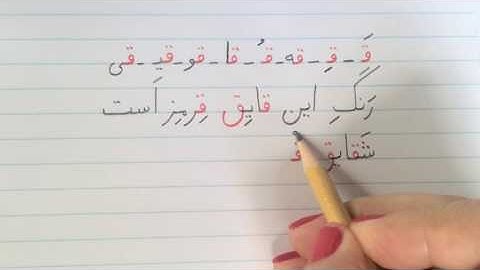 قَ - قِ - قه - قُ - قا - قو - قیـ - قی
رَنگِ این قایِق قِرمِز اَست
شَقایِق